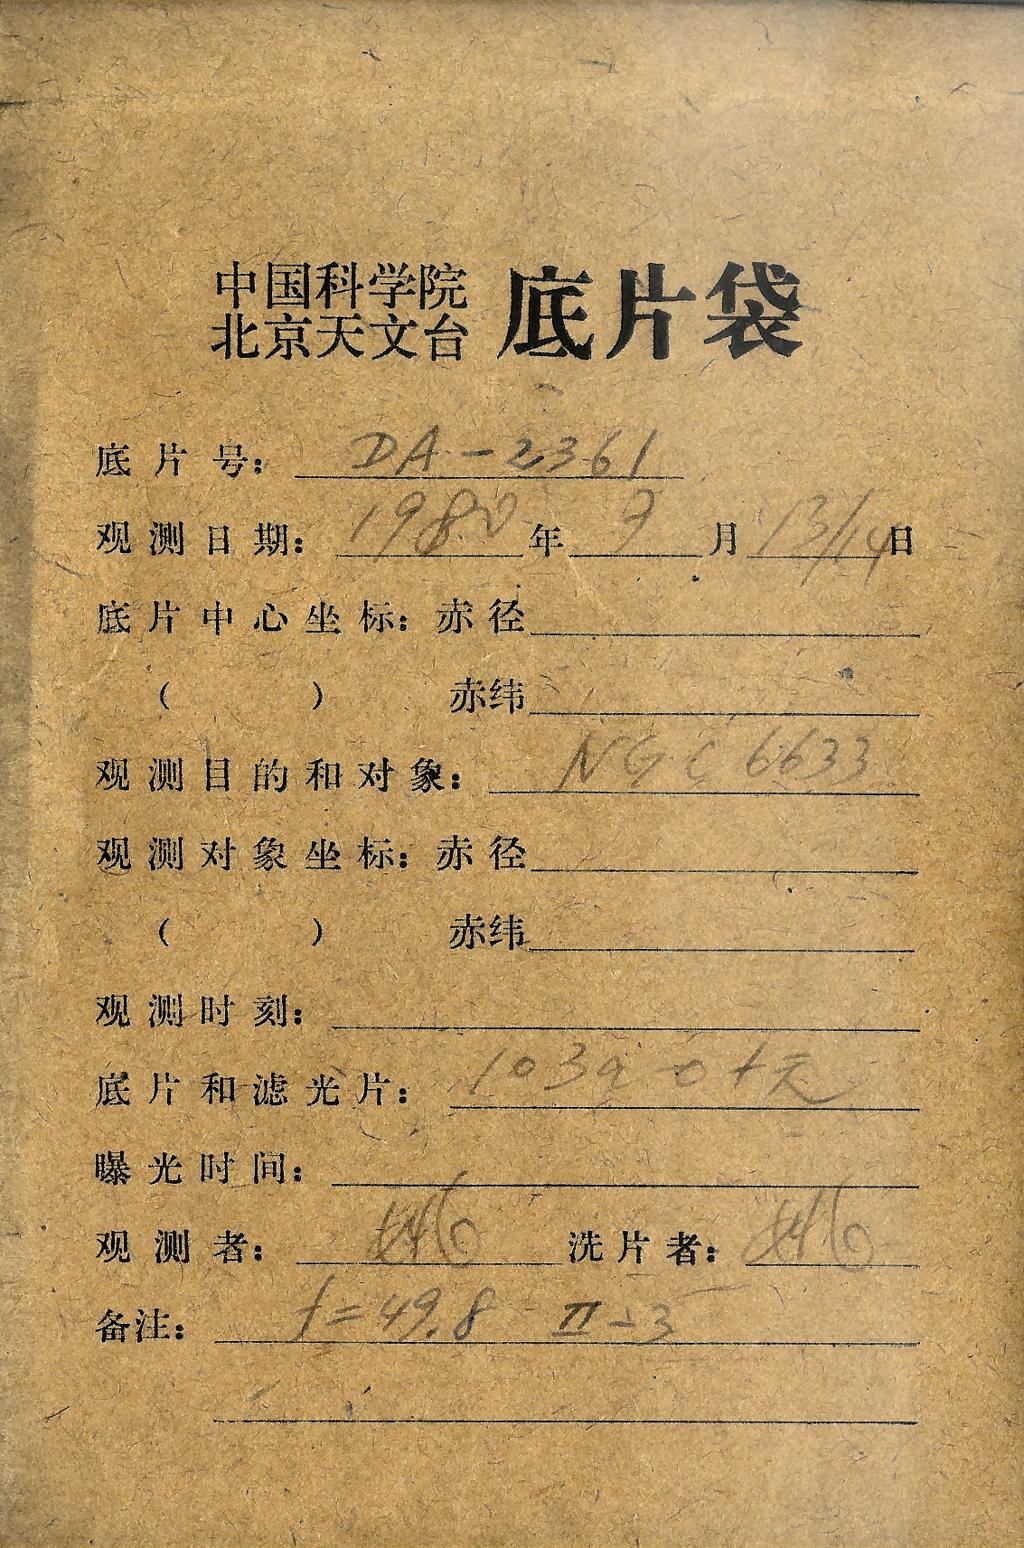 中国科学院
北京天文台 底片袋
底片号: DA-2361
观测日期: 1980年 9月 13/14日
底片中心坐标: 赤径
( ) 赤纬
观测目的和对象: NGC 6633
观测对象坐标: 赤径
( ) 赤纬
观测时刻:
底片和滤光片: 103a-O+无
曝光时间:
观测者: 洗片者:
备注: f=49.8 II-3